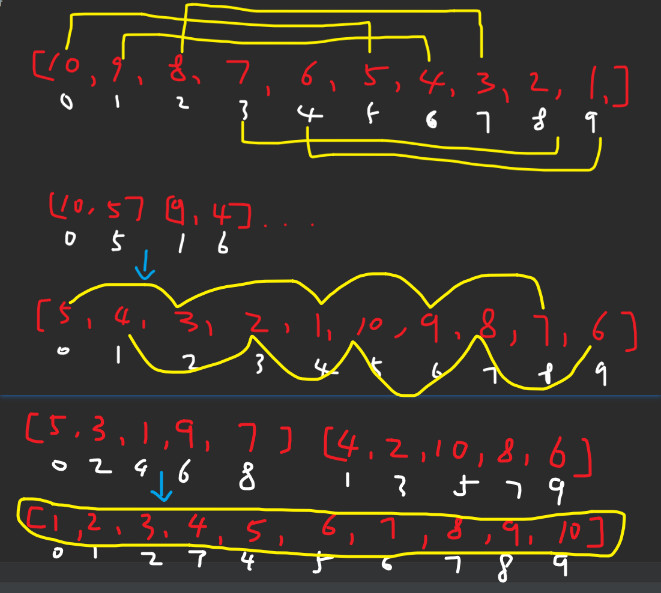 [10, 9, 8, 7, 6, 5, 4, 3, 2, 1,]
0 1 2 3 4 5 6 7 8 9
[10, 5] [9, 4] ....
0 5 1 6
[5, 4, 3, 2, 1, 10, 9, 8, 7, 6]
0 1 2 3 4 5 6 7 8 9
[5, 3, 1, 9, 7] [4, 2, 10, 8, 6]
0 2 4 6 8 1 3 5 7 9
[1, 2, 3, 4, 5, 6, 7, 8, 9, 10]
0 1 2 3 4 5 6 7 8 9